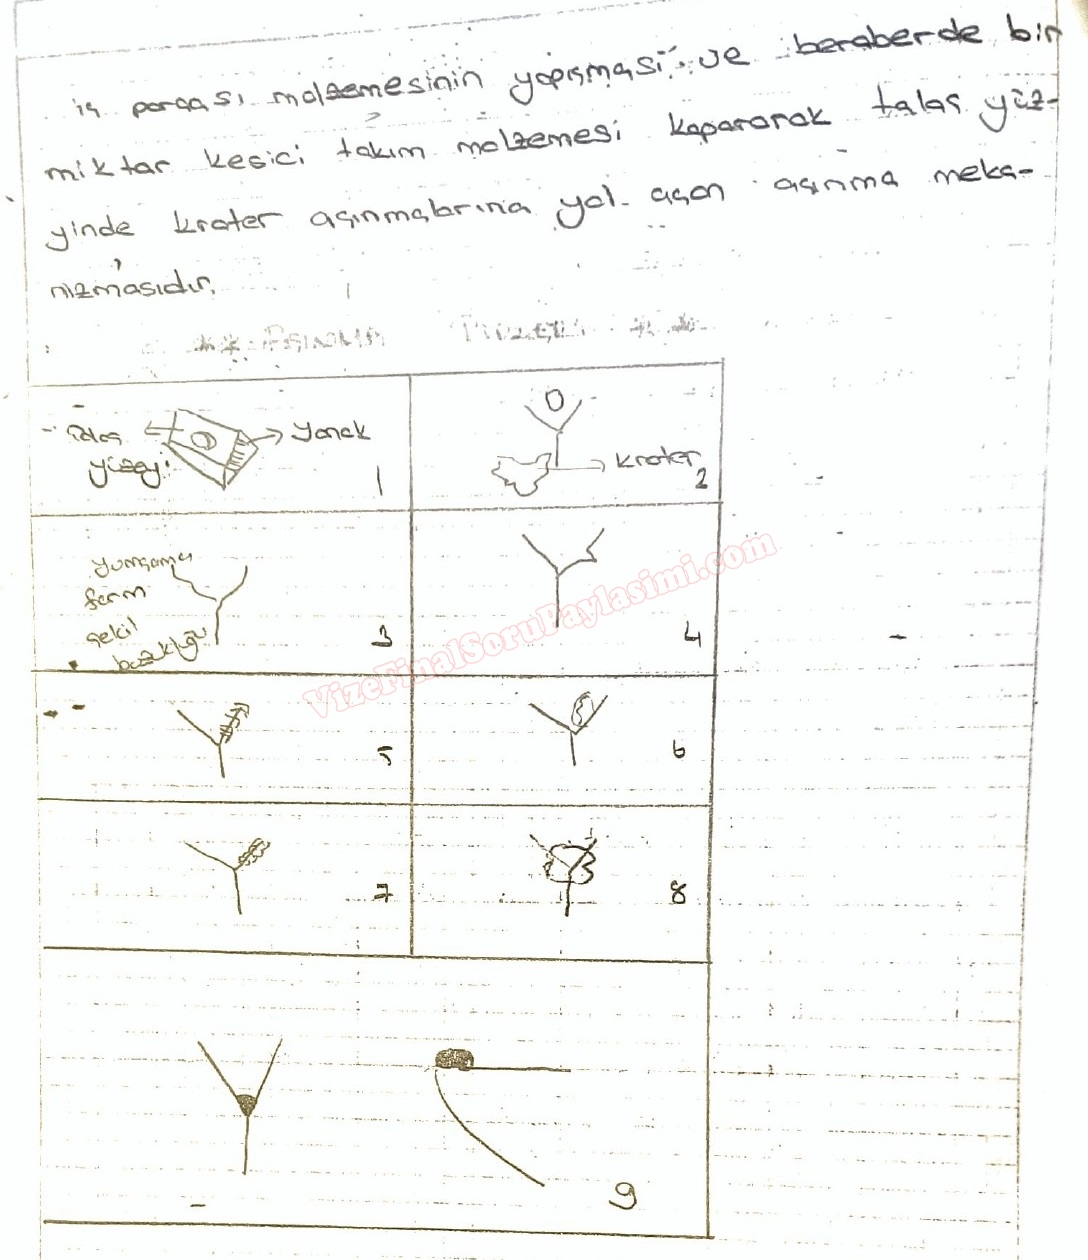 iş parçası malzemesinin yapışması ve beraberde bir
miktar kesici takım malzemesi kapararak talaş yüz-
yinde krater aşınmalarına yol açan aşınma meka-
nizmasıdır.
Talaş yüzeyi
Yanak
1
Krater
2
yumşama
form
şekil
bozukluğu
3
4
5
6
7
8
9
VizeFinalSoruPaylasimi.com